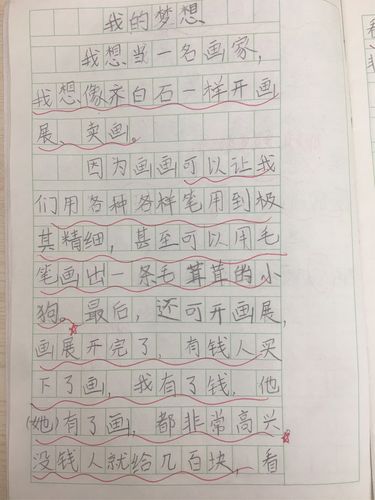 我的梦想
我想当一名画家，
我想像齐白石一样开画
展、卖画。
因为画画可以让我
们用各种各样笔用到极
其精细，甚至可以用毛
笔画出一条毛茸茸的小
狗。最后，还可开画展，
画展开完了，有钱人买
下了画，我有了钱，他
(她)有了画，都非常高兴。
没钱人就给几百块，看